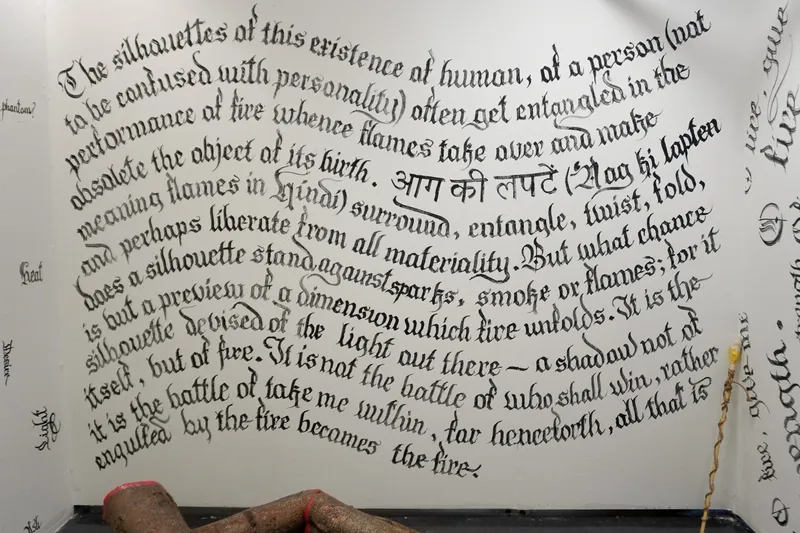 The silhouettes of this existence of human, of a person (not
to be confused with personality) often get entangled in the
performance of fire whence flames take over and make
obsolete the object of its birth. आग की लपटें (Aag ki lapten
meaning flames in Hindi) surround, entangle, twist, fold,
and perhaps liberate from all materiality. But what chance
does a silhouette stand against sparks, smoke or flames; for it
is but a preview of a dimension which fire unfolds. It is the
silhouette devised of the light out there – a shadow not of
itself, but of fire. It is not the battle of who shall win, rather
it is the battle of take me within, for henceforth, all that is
engulfed by the fire becomes the fire.
phantom?
Heat
theatre
light
O fire, give me